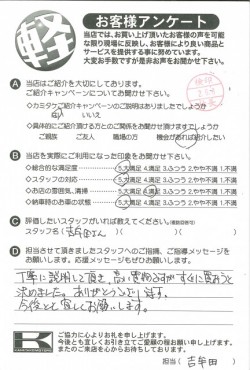 軽
お客様アンケート
当店では、お買い上げ頂いたお客様の声を可能
な限り現場に反映し、お客様により良い商品と
サービスを提供する事に努めています。
大変お手数ですが是非お声をお聞かせ下さい。
A 当店はご紹介を大切にしております。
ご紹介キャンペーンについてお聞かせ下さい。
◇カミタケご紹介キャンペーンのご説明はありましたでしょうか
はい いいえ
◇具体的にご紹介頂ける方とのご関係をお聞かせ頂けますでしょうか
ご親族 ご友人 職場の方 機会があれば紹介したい
B 当店を実際にご利用になった印象をお聞かせ下さい。
◇総合的な満足度 5.大満足 4.満足 3.ふつう 2.やや不満 1.不満
◇スタッフの対応 5.大満足 4.満足 3.ふつう 2.やや不満 1.不満
◇お店の雰囲気、清掃 5.大満足 4.満足 3.ふつう 2.やや不満 1.不満
◇納車時のお車の状態 5.大満足 4.満足 3.ふつう 2.やや不満 1.不満
C 評価したいスタッフがいれば教えてください。(複数回答可)
スタッフ名( 吉牟田さん )
D 担当させて頂きましたスタッフへのご指摘、ご指導メッセージを
お願いします。ぜひ応援メッセージもお願いします。
丁寧に説明して頂き、高い買物ですがすぐに買おうと
決めました。ありがとうございます。
今後とも宜しくお願いします。
K
ご協力に心よりお礼を申し上げます。
今後とも宜しくお引き立てご愛顧の程お願い申し上げます。
またのご来店を心からお待ちしております。
担当( 吉牟田 )